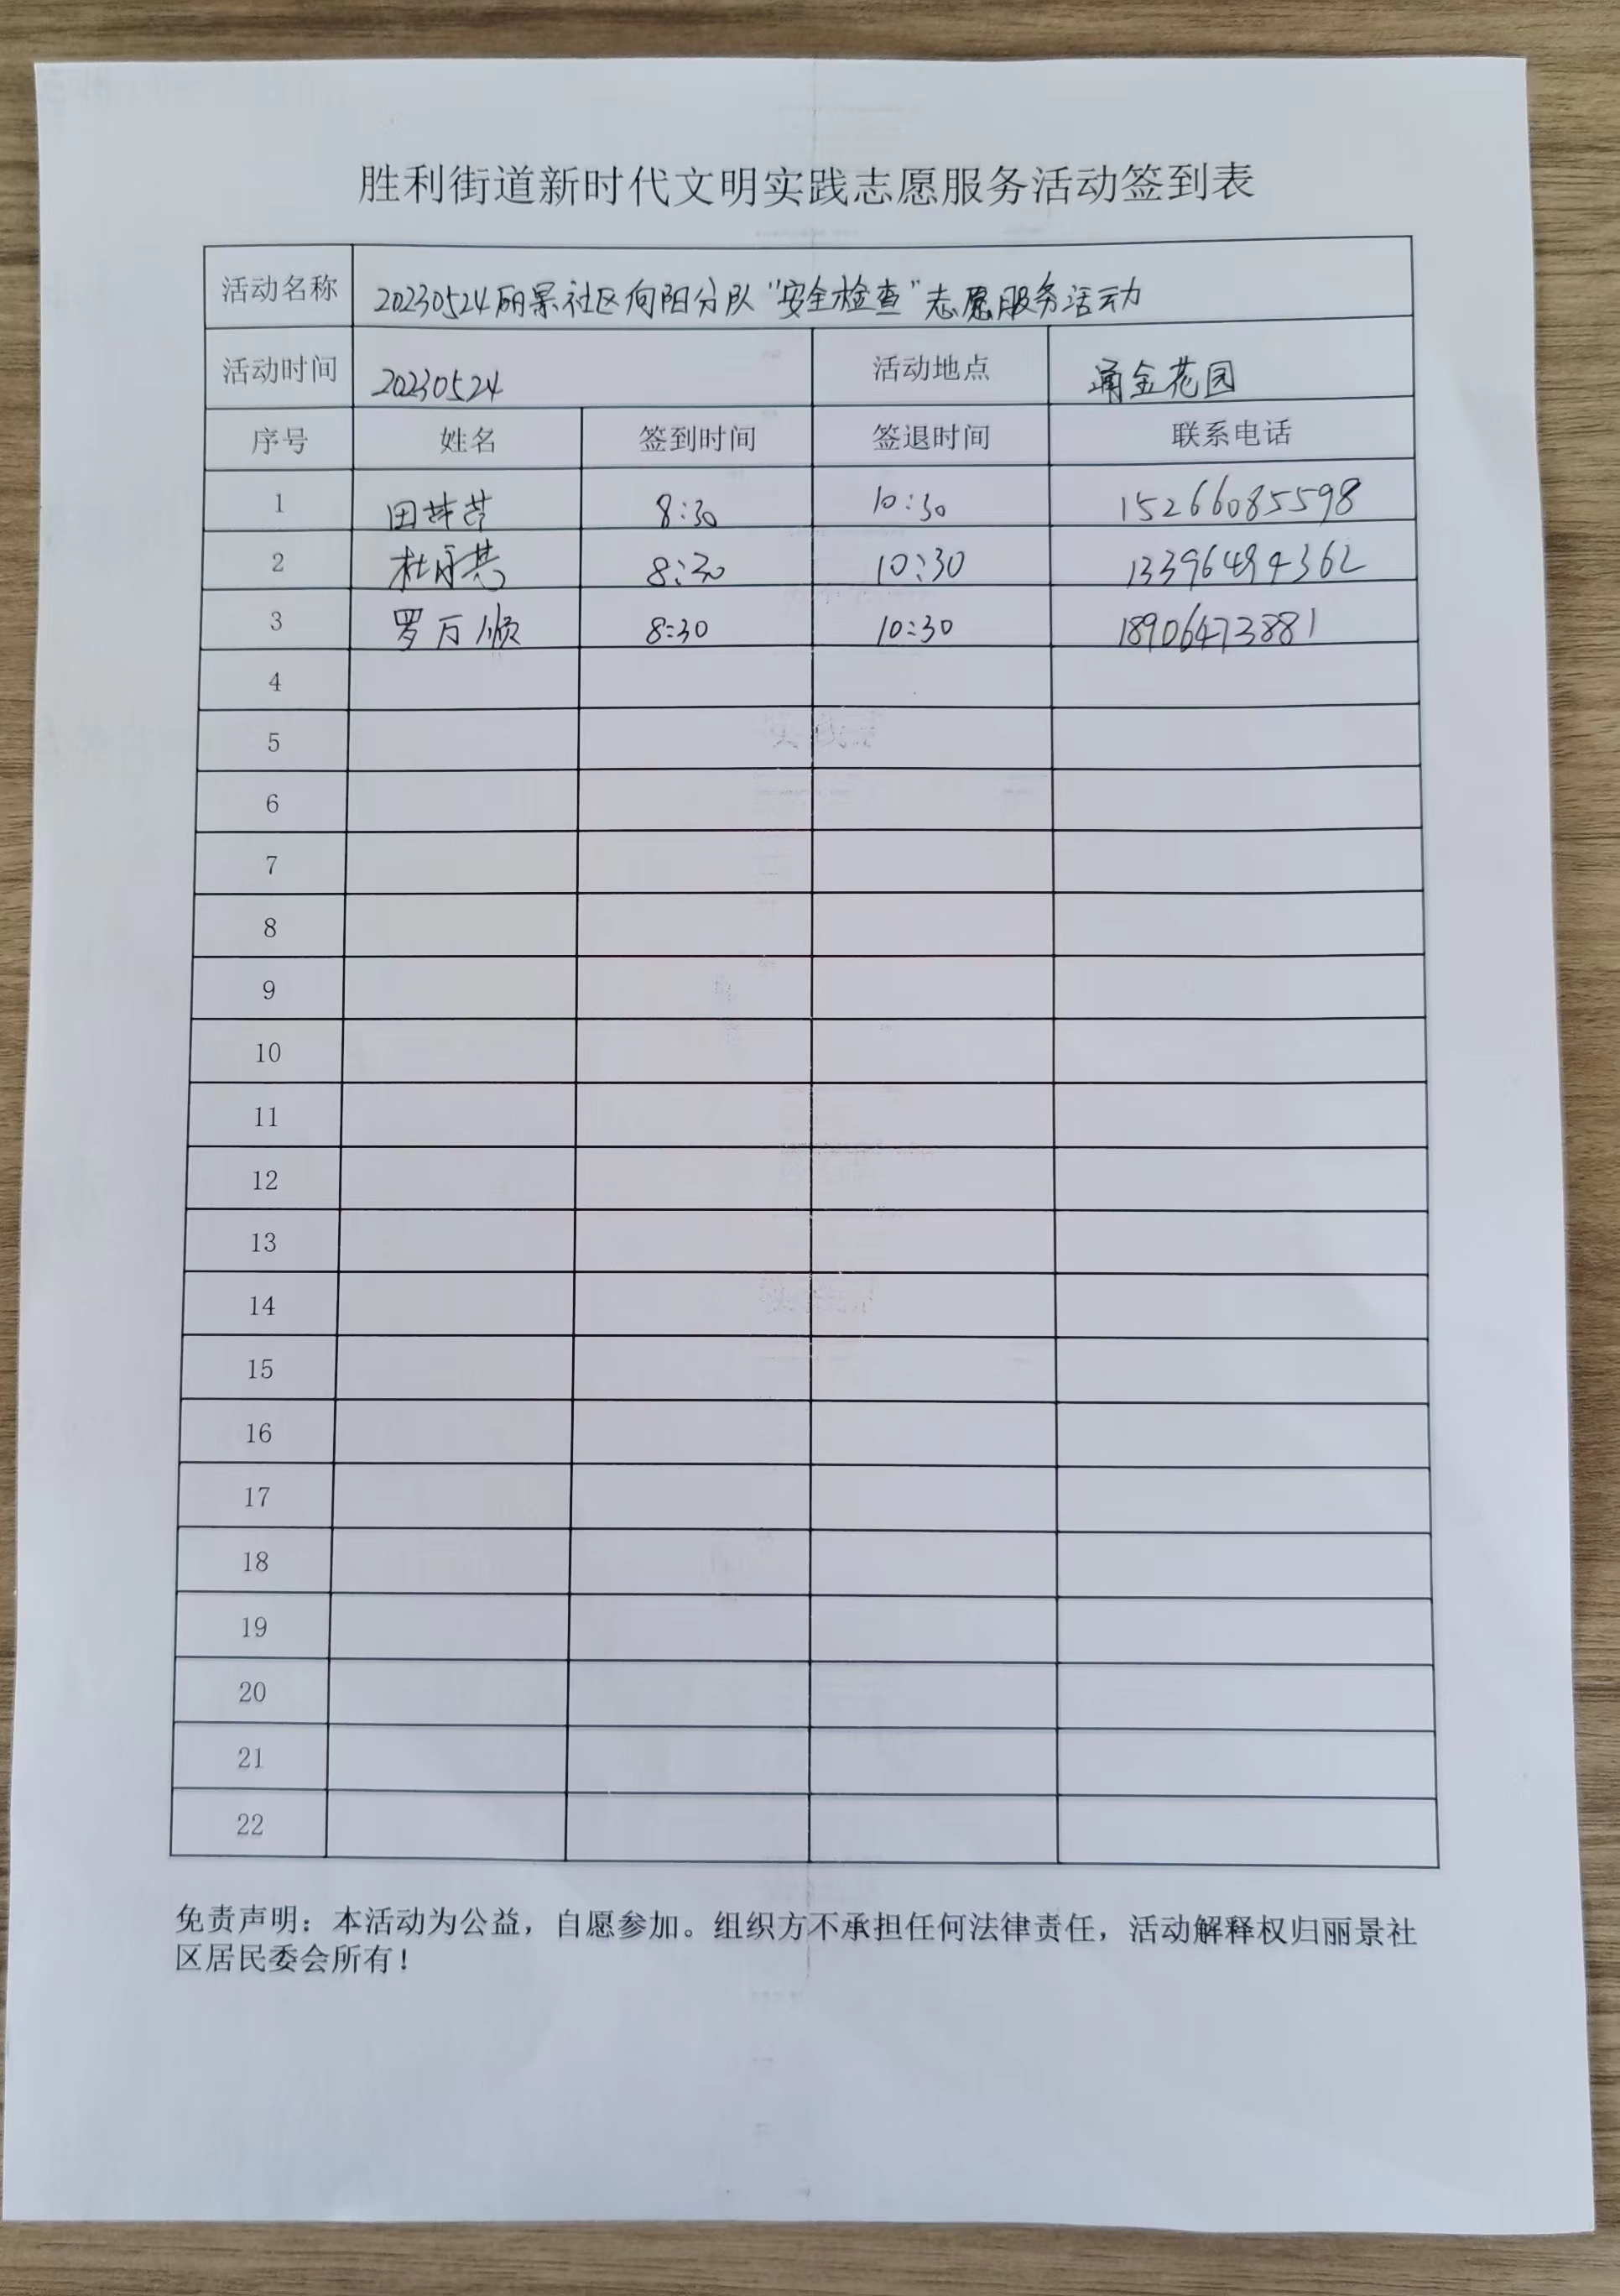 胜利街道新时代文明实践志愿服务活动签到表
活动名称 20230524丽景社区向阳分队"安全检查"志愿服务活动
活动时间 20230524 活动地点 涌金花园
序号 姓名 签到时间 签退时间 联系电话
1 田 8:30 10:30 15266085598
2 杜 8:30 10:30 13396494362
3 罗万顺 8:30 10:30 18906473881
4
5
6
7
8
9
10
11
12
13
14
15
16
17
18
19
20
21
22
免责声明：本活动为公益，自愿参加。组织方不承担任何法律责任，活动解释权归丽景社
区居民委会所有！